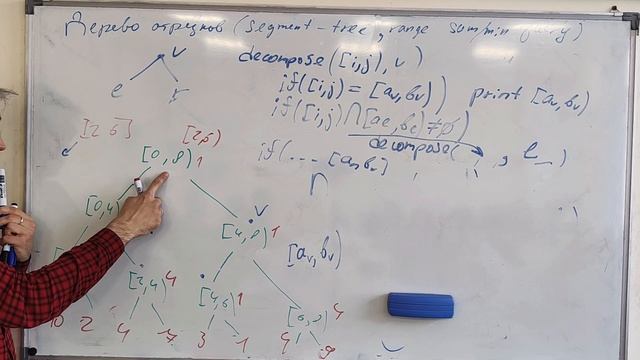 Дерево отрезков (segment-tree, range sum/min query)
decompose([i,j), v)
if([i,j) = [aᵥ, bᵥ)) print [aᵥ, bᵥ)
if([i,j) ∩ [aₑ, bₑ) ≠ ∅)
decompose( , e_ )
if(...[aᵣ, bᵣ)
∩
v
e r
[2 5] [2,5)
[0,8) 1
[0,4)
v
[4,8) 1
[aᵥ, bᵥ)
[2,4) 4
[4,6) 1
[6,8) 4
2 4 7 3 1 4 9